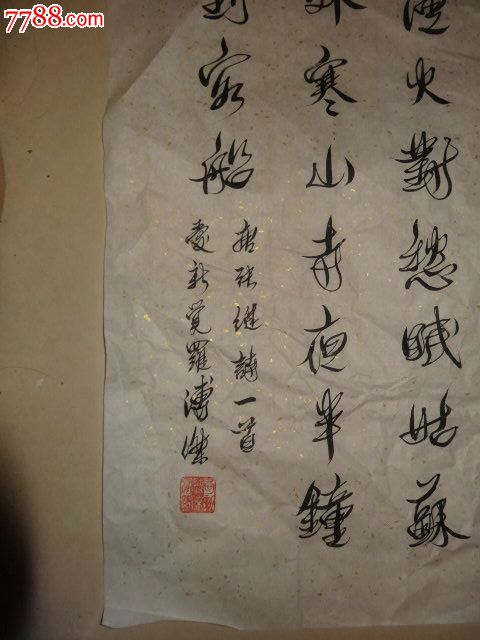 7788.com
中国收藏热线
漁火對愁眠姑蘇
外寒山寺夜半鐘
到客船
唐張继詩一首
愛新覺羅溥傑